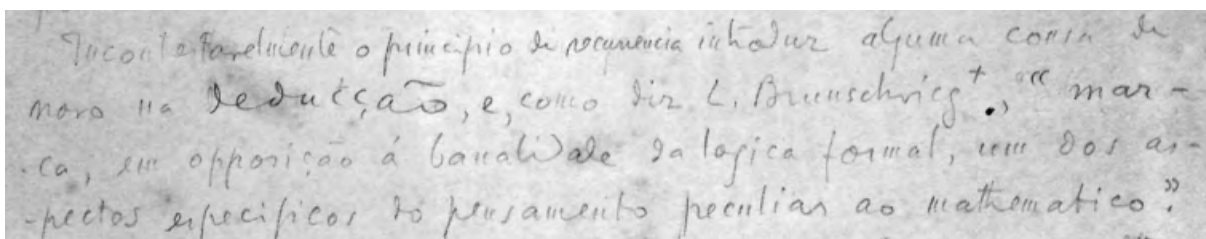 Incontestavelmente o principio de recurrencia introduz alguma cousa de
novo na deducção, e, como diz L. Brunschvicg+., “mar-
-ca, em opposição á banalidade da logica formal, um dos as-
-pectos especificos do pensamento peculiar ao mathematico.”